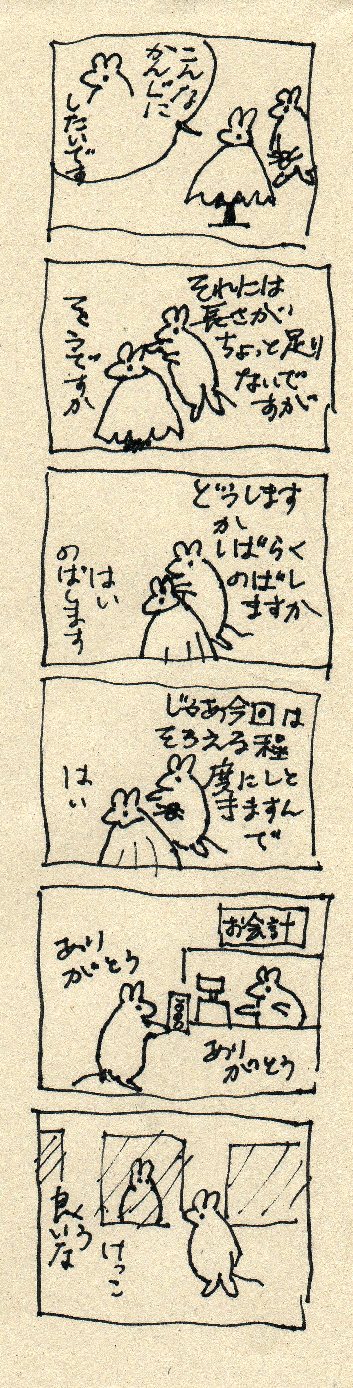 こんな
かんじに
したいです
それには
長さが
ちょっと足り
ないで
すが
そうですか
どうします
か
しばらく
のばし
ますか
はい
のばします
じゃあ今回は
そろえる程
度にしと
きますんで
はい
お会計
あり
がとう
あり
がとう
けっこ
う
良いな